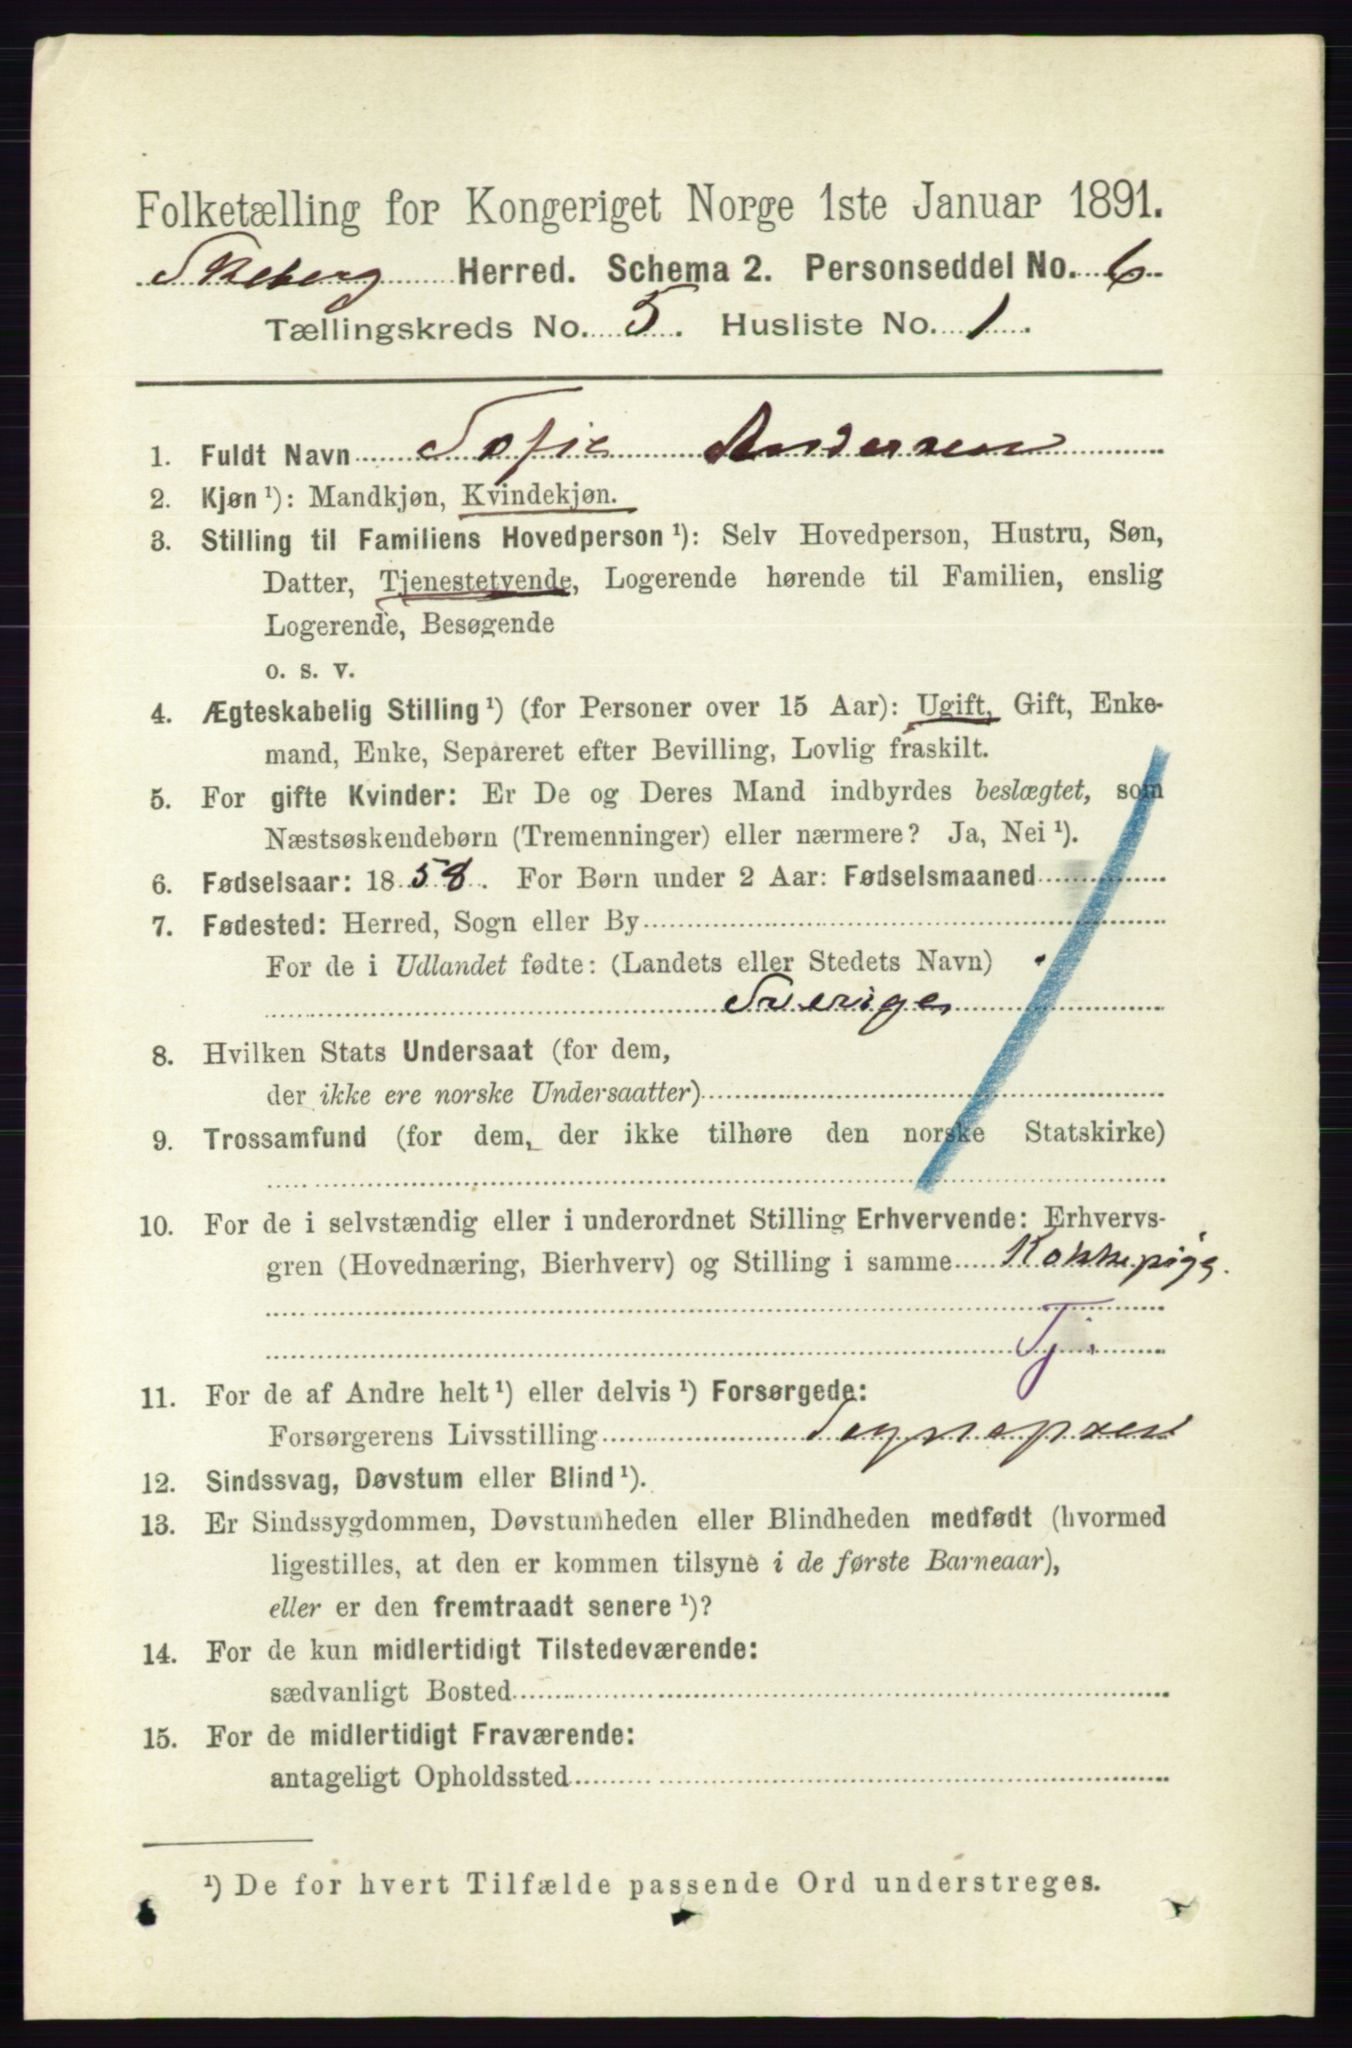 Folketælling for Kongeriget Norge 1ste Januar 1891.
Skeberg Herred. Schema 2. Personseddel No. 6
Tællingskreds No. 5. Husliste No. 1.
1. Fuldt Navn Sofie Andersen
2. Kjøn ¹): Mandkjøn, Kvindekjøn.
3. Stilling til Familiens Hovedperson ¹): Selv Hovedperson, Hustru, Søn,
Datter, Tjenestetyende, Logerende hørende til Familien, enslig
Logerende, Besøgende
o. s. v.
4. Ægteskabelig Stilling ¹) (for Personer over 15 Aar): Ugift, Gift, Enke-
mand, Enke, Separeret efter Bevilling, Lovlig fraskilt.
5. For gifte Kvinder: Er De og Deres Mand indbyrdes beslægtet, som
Næstsøskendebørn (Tremenninger) eller nærmere? Ja, Nei ¹).
6. Fødselsaar: 1858. For Børn under 2 Aar: Fødselsmaaned
7. Fødested: Herred, Sogn eller By
For de i Udlandet fødte: (Landets eller Stedets Navn)
Sverige
8. Hvilken Stats Undersaat (for dem,
der ikke ere norske Undersaatter)
9. Trossamfund (for dem, der ikke tilhøre den norske Statskirke)
10. For de i selvstændig eller i underordnet Stilling Erhvervende: Erhvervs-
gren (Hovednæring, Bierhverv) og Stilling i samme Kokkepige.
Tj.
11. For de af Andre helt ¹) eller delvis ¹) Forsørgede:
Forsørgerens Livsstilling Sogneprest
12. Sindssvag, Døvstum eller Blind ¹).
13. Er Sindssygdommen, Døvstumheden eller Blindheden medfødt (hvormed
ligestilles, at den er kommen tilsyne i de første Barneaar),
eller er den fremtraadt senere ¹)?
14. For de kun midlertidigt Tilstedeværende:
sædvanligt Bosted
15. For de midlertidigt Fraværende:
antageligt Opholdssted
¹) De for hvert Tilfælde passende Ord understreges.